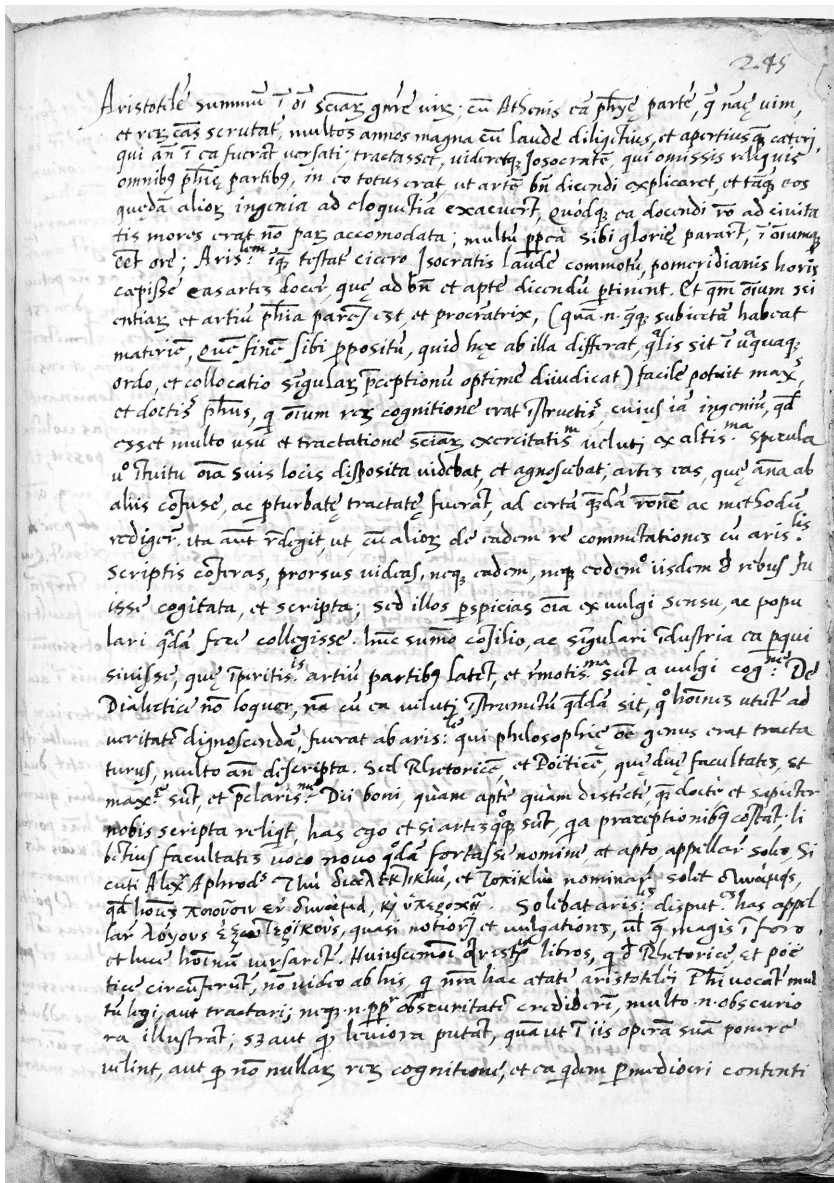 245
Aristotelē summū ī oī sciaꝝ gn̄re virū; cū Athenis eā ph̄iȩ partē, q̄ naȩ vim,
et reꝝ cās scrutat, multos annos magna cū laude diligētius, et apertiusq̨ cæteri,
qui an̄ ī ea fuerāt versati, tractasset, videretq̨ Isocratē, qui omissis reliquis
omnibꝰ ph̄iȩ partibꝰ, in eo totus erat, ut artē bn̄ dicendi explicaret, et tāq̨ eos
quędā alioꝝ ingenia ad eloquētiā exacuert, quodq̨ ea docendi rō ad civita
tis mores erat nō paꝝ accomodata; multū ꝓpea sibi glorię pararit, ī oīumq̨
eēt ore; Aris:lem īq̨ testat cicero Isocratis laude commotū, pomeridianis horis
cæpisse eas artes docer, quę ad bn̄ et apte dicendū ꝑtinent. Et qm̄ oīum sci
entiaꝝ et artiū ph̄ia parēs est, et procreatrix, (quā .n. q̄q̨ subiectā habeat
materiē, quē finē sibi ꝓpositū, quid hęc ab illa differat, q̄lis sit ī uꝰquaq̨
ordo, et collocatio singulaꝝ p̄ceptionū optime diiudicat) facile potuit maxꝰ
et doctisꝰ ph̄us, q̄ oīum reꝝ cognitione erat īstructisꝰ, cuius iā ingeniū, qđ
esset multo usū et tractatione sciaꝝ exercitatism veluti ex altis:ma specula
uꝰ ītuitu oīa suis locis disposita videbat, et agnoscebat; artes eas, quę an̄a ab
aliis cōfuse, ac ꝑturbatę tractatę fuerāt, ad certā q̄dā rōnē ac methodū
rediger, ita aut̄ redegit, ut, cū alioꝝ de eadem re commētationes cū aris:lis
scriptis cōferas, prorsus videas, neq̨ eadem, neq̨ eodem° iisdem đ rebus fu
isse cogitata, et scripta; sed illos ꝑspicias oīa ex vulgi sensu, ac popu
lari q̄dā fece collegisse. hūc sumō cōsilio, ac singulari īdustria ea ꝑqui
sivisse, quę īperitis:is artiū partibꝰ latēt, et remotis:ma sūt a vulgi cog:ne. De
Dialectice nō loquor, nā cū ea veluti īstrumētū qđdā sit, q° hoīnes utūt ad
veritatē dignoscendā, fuerat ab aris:le qui philosophię oē genus erat tracta
turus, multo an̄ descripta. Sed Rhetoricē, et Poeticē, quę duę facultates, et
maxę sūt, et p̄claris:mę Dii boni, quàm aptè quàm distictè, q̄ doctè et sapiēter
nobis scripta reliqt, has ego et si artes q°q̨ sūt, qa præceptionibꝰ cōstāt, li
bētius facultates voco novo q°dā fortasse nomine, at apto, appellar soleo, si
cuti Alexr Aphrods Τὴν διαλεκτικὴν, et τοπικὴν nominar solet δυνάμεις,
qđ hoīes ποιοῦσιν ἐν δυνάμει, κỳ ὑπεροχῇ. Solebat aris:lis disputes has appel
lar λόγους ἐξωτερικοὺς, quasi notiores et vulgatiores, ul̄ q magis ī foro
et luce hoīnum versarēt. Huiuscemōi Aristlis libros, q đ Rhetorice, et poe
tice circūferūt, nō video ab his, q nr̄a hac ætate aristotelei Ph̄i vocāt mul
tū legi, aut tractari; neq̨ .n. ꝓpr obscuritatē crediderī, multo .n. obscurio
ra illustrāt; sꝫ aut qa leviora putāt, quā ut ī iis operā suā ponere
velint, aut qa nō nullaꝝ reꝝ cognitione, et ea qdem ꝑmediocri contenti